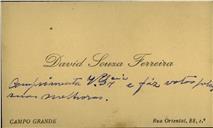 David Souza Ferreira
Comprimenta V. Exª e faz votos pelas
suas melhoras.
CAMPO GRANDE Rua Oriental, 88, r.º